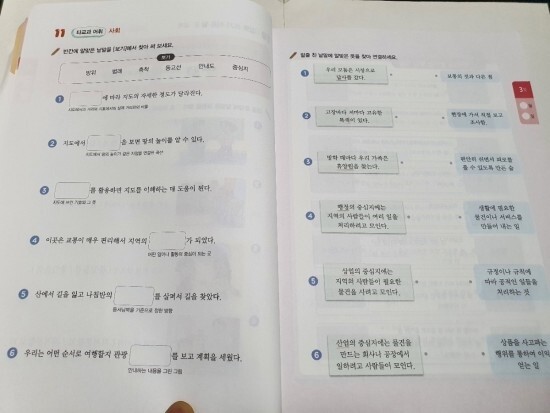 11 타교과 어휘 사회
빈칸에 알맞은 낱말을 [보기]에서 찾아 써 보세요.
보기
방위 범례 축척 등고선 안내도 중심지
1 에 따라 지도의 자세한 정도가 달라진다.
2 지도에서 을 보면 땅의 높이를 알 수 있다.
지도에서 땅의 높이가 같은 지점을 연결한 곡선
3 를 활용하면 지도를 이해하는 데 도움이 된다.
4 이곳은 교통이 매우 편리해서 지역의 가 되었다.
어떤 일이나 활동의 중심이 되는 곳
5 산에서 길을 잃고 나침반의 를 살펴서 길을 찾았다.
동서남북을 기준으로 정한 방향
6 우리는 어떤 순서로 여행할지 관광 를 보고 계획을 세웠다.
안내하는 내용을 그린 그림
밑줄 친 낱말에 알맞은 뜻을 찾아 연결하세요.
3
1 우리 모둠은 시청으로
답사를 갔다.
2 고장마다 저마다 고유한
특색이 있다.
3 방학 때마다 우리 가족은
휴양림을 찾는다.
4 행정의 중심지에는
지역의 사람들이 여러 일을
처리하려고 모인다.
5 상업의 중심지에는
지역의 사람들이 필요한
물건을 사려고 모인다.
6 산업의 중심지에는 물건을
만드는 회사나 공장에서
일하려고 사람들이 모인다.
보통의 것과 다른 점
현장에 가서 직접 보고
조사함.
편안히 쉬면서 피로를
풀 수 있도록 만든 숲
생활에 필요한
물건이나 서비스를
만들어 내는 일
규정이나 규칙에
따라 공적인 일들을
처리하는 것
상품을 사고파는
행위를 통하여 이익
얻는 일